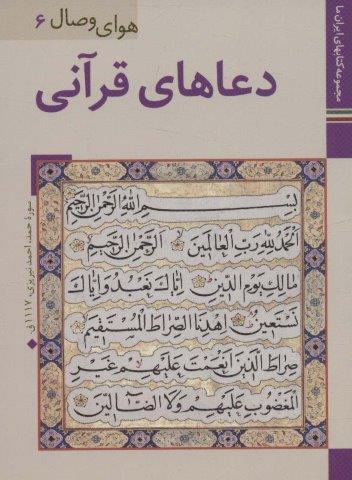 هوای وصال ۶
دعاهای قرآنی
مجموعه کتابهای ایران ما
بسم الله الرحمن الرحیم
الحمد لله رب العالمین الرحمن الرحیم
مالک یوم الدین إیاک نعبد وإیاک
نستعین اهدنا الصراط المستقیم
صراط الذین أنعمت علیهم غیر
المغضوب علیهم ولا الضالین
سورهٔ حمد، احمد نیریزی، ۱۱۱۷ق